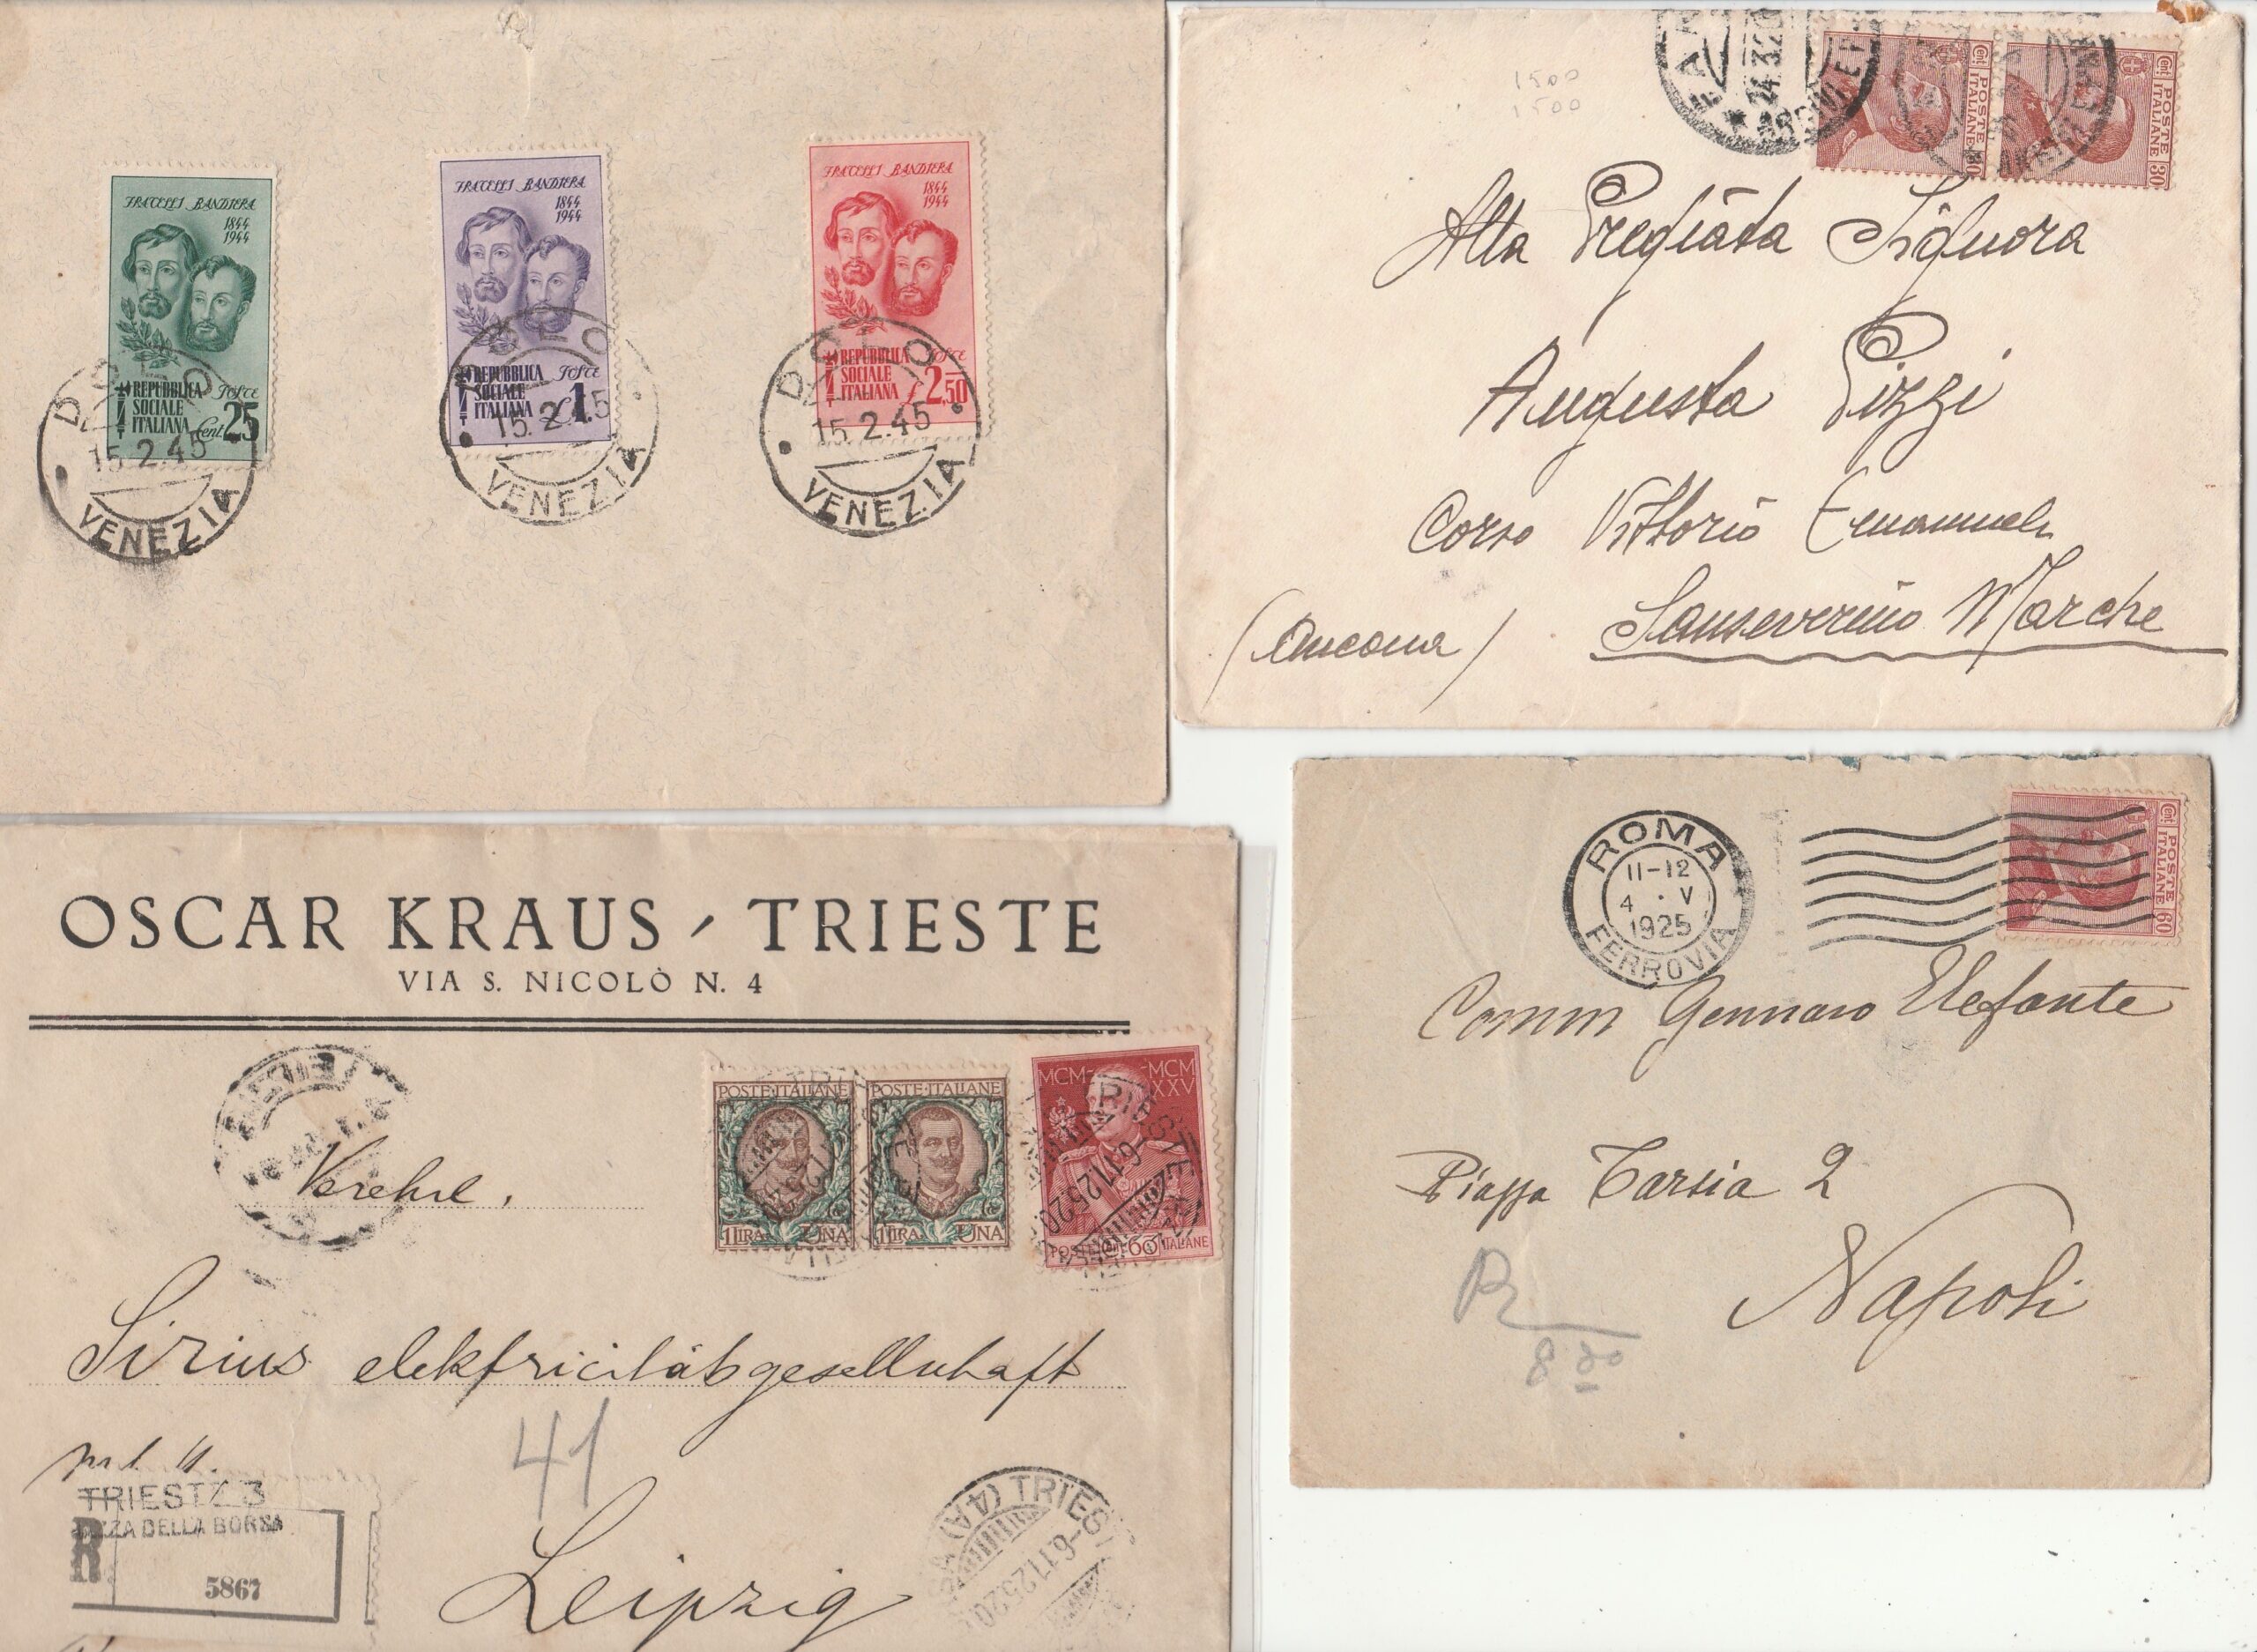 FRATELLI BANDIERA
1844
1944
REPUBBLICA Poste
SOCIALE
ITALIANA Cent. 25
DOLO
15.2.45
VENEZIA
FRATELLI BANDIERA
1844
1944
REPUBBLICA Poste
SOCIALE
ITALIANA £ 1.
DOLO
15.2.45
VENEZIA
FRATELLI BANDIERA
1844
1944
REPUBBLICA Poste
SOCIALE
ITALIANA £ 2,50
DOLO
15.2.45
VENEZIA
1500
1500
Cent POSTE ITALIANE 30
Cent POSTE ITALIANE 30
Alta Pregiata Signora
Augusta Pizzi
Corso Vittorio Emanuele
(Ancona) Sanseverino Marche
OSCAR KRAUS - TRIESTE
VIA S. NICOLÒ N. 4
POSTE·ITALIANE
1 LIRA UNA
POSTE·ITALIANE
1 LIRA UNA
MCM MCM
XXV
POSTE 60 ITALIANE
TRIESTE
-6.11.25.20
Verehrl.
Sirius elektricitätsgesellschaft
41
TRIESTE 3
PIAZZA DELLA BORSA
R
5867
Leipzig
TRIESTE
-6.11.25.20
ROMA
11-12
4 · V
1925
FERROVIA
Cent POSTE ITALIANE 60
Comm Gennaro Elefante
Piazza Tarsia 2
Napoli